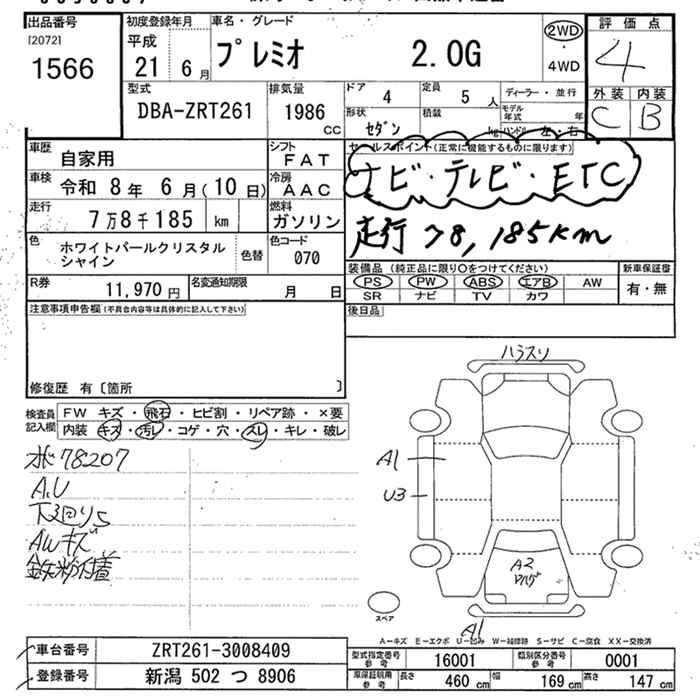 出品番号
[2072]
1566
初度登録年月
平成
21 6月
車名・グレード
プレミオ 2.0G
2WD
・
4WD
評価点
4
外装 内装
C B
型式
DBA-ZRT261
排気量
1986
CC
ドア
4
定員
5 人
ディーラー・並行
形状
セダン
積載
kg
モデル年式 年
ハンドル 左・右
車歴
自家用
シフト
FAT
車検
令和 8年 6月(10日)
冷房
AAC
走行
7万8千185 km
燃料
ガソリン
色
ホワイトパールクリスタル
シャイン
色替
色コード
070
R券
11,970 円
名変通知期限
月 日
セールスポイント(正常に機能するものに限ります)
ナビ・テレビ・ETC
走行 78,185km
装備品(純正品に限り○をつけてください)
PS PW ABS エアB AW
SR ナビ TV カワ
新車保証書
有・無
後日品
注意事項申告欄(不具合内容等は具体的に記入して下さい)
修復歴 有〔箇所 〕
検査員
記入欄
FW キズ・飛石・ヒビ割・リペア跡・×要
内装 キズ・汚レ・コゲ・穴・スレ・キレ・破レ
ボ 78207
A.U
下廻りS
AWキズ
鉄粉付着
ハラスリ
A1
U3
A2
スペア
A1
A−キズ E−エクボ U−凹み W−補修跡 S−サビ C−腐食 XX−交換済
車台番号
ZRT261-3008409
登録番号
新潟 502 つ 8906
型式指定番号
参考
16001
類別区分番号
参考
0001
車庫証明用
参考
長さ
460 cm
幅
169 cm
高さ
147 cm